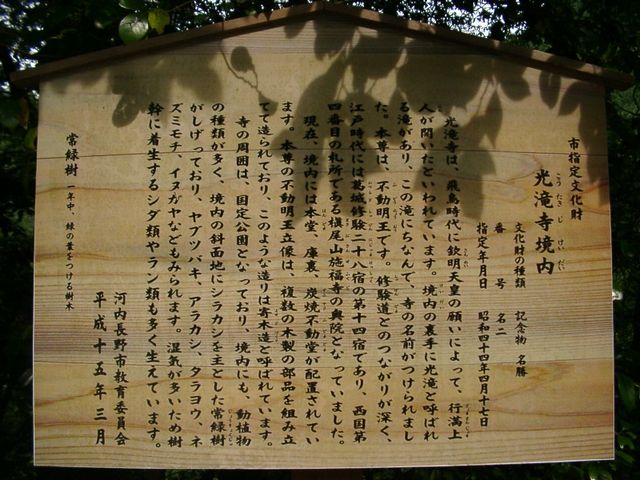 市指定文化財
光滝寺境内
こうたきじ けいだい
文化財の種類 記念物 名勝
番号 名二
指定年月日 昭和四十四年四月十七日
光滝寺は、飛鳥時代に欽明天皇の願いによって、行満上
人が開いたといわれています。境内の裏手に光滝と呼ばれ
る滝があり、この滝にちなんで、寺の名前がつけられまし
た。本尊は、不動明王です。修験道とのつながりが深く、
江戸時代には葛城修験二十八宿の第十四宿であり、西国第
四番目の札所である槇尾山施福寺の奥院となっていました。
現在、境内には本堂、庫裏、炭焼不動堂が配置されてい
ます。本尊の不動明王立像は、複数の木製の部品を組み立
てて造られており、このような造りは寄木造と呼ばれています。
寺の周囲は、国定公園となっており、境内にも、動植物
の種類が多く、境内の斜面地にシラカシを主とした常緑樹
がしげっており、ヤブツバキ、アラカシ、タラヨウ、ネ
ズミモチ、イヌガヤなどもみられます。湿気が多いため樹
幹に着生するシダ類やラン類も多く生えています。
常緑樹 一年中、緑の葉をつける樹木
河内長野市教育委員会
平成十五年三月